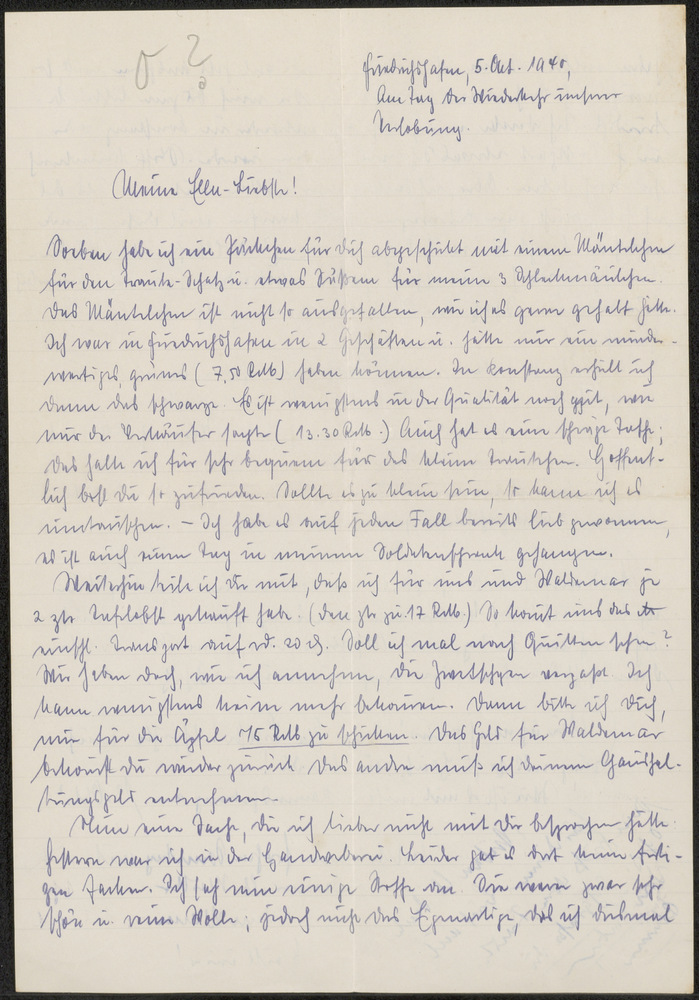 Friedrichshafen, 5. Okt. 1940,
Am Tag der Wiederkehr unsrer
Verlobung.
Meine Ella-Liebste!
Soeben habe ich ein Päckchen für Dich abgeschickt mit einem Mäntelchen
für den Traute-Schatz u. etwas Süßem für meine 3 Schleckmäulchen.
Das Mäntelchen ist nicht so ausgefallen, wie ich es gern gehabt hätte.
Ich war in Friedrichshafen in 2 Geschäften u. hätte nur ein minder-
wertiges, grünes (7,50 RM) haben können. In Konstanz erhielt ich
dann das schwarze. Es ist wenigstens in der Qualität noch gut, wie
mir der Verkäufer sagte (13.30 RM.) Auch hat es eine schräge Tasche;
das halte ich für sehr bequem für das kleine Trautchen. Hoffent-
lich bist Du so zufrieden. Sollte es zu klein sein, so kann ich es
umtauschen. – Ich habe es auf jeden Fall bereits lieb gewonnen,
es ist auch einen Tag in meinem Soldatenschrank gehangen.
Weiterhin teile ich Dir mit, daß ich für uns und Waldemar je
2 ztr Tafelobst gekauft habe. (Den ztr zu 17 RM.) So kommt uns das
einschl. Transport auf rd. 20 Soll ich mal nach Quitten sehen?
Wir haben doch, wie ich annehme, die Zwetschgen verpaßt. Ich
kann wenigstens keine mehr bekommen. Dann bitte ich Dich,
mir für die Äpfel 75 RM zu schicken. Das Geld für Waldemar
bekommst Du wieder zurück. Das andre muß ich Deinem Haushal-
tungsgeld entnehmen.
Nun eine Sache, die ich lieber mit Dir besprochen hätte.
Gestern war ich in der Handweberei. Leider gab es dort keine ferti-
gen Jacken. Ich sah mir einige Stoffe an. Sie waren zwar sehr
schön u. reine Wolle; jedoch nicht das Eigenartige, das ich diesmal